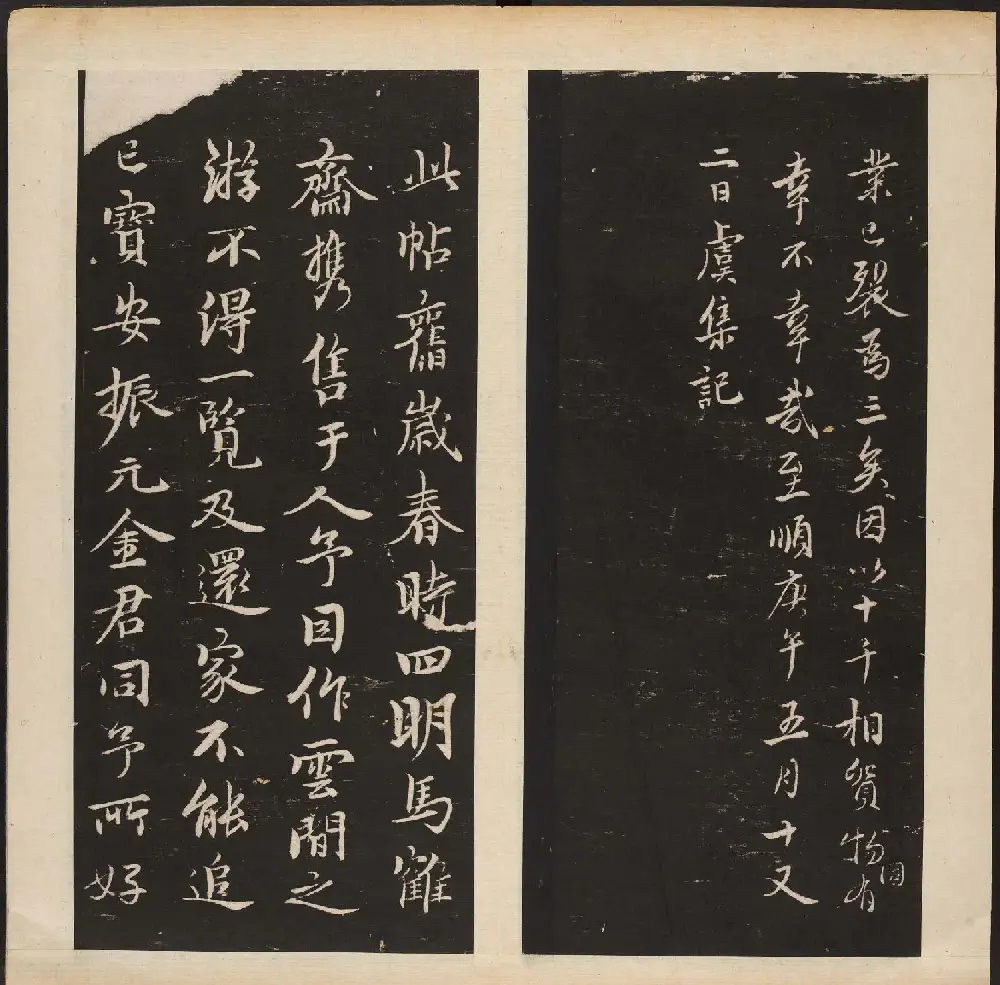 業已裂爲三矣因以十千相貿物固有
幸不幸哉至順庚午五月十又
二日虞集記
此帖舊歲春時四明馬寉
齋攜售于人予因作雲間之
游不得一覧及還家不能追
已寶安振元金君同予所好